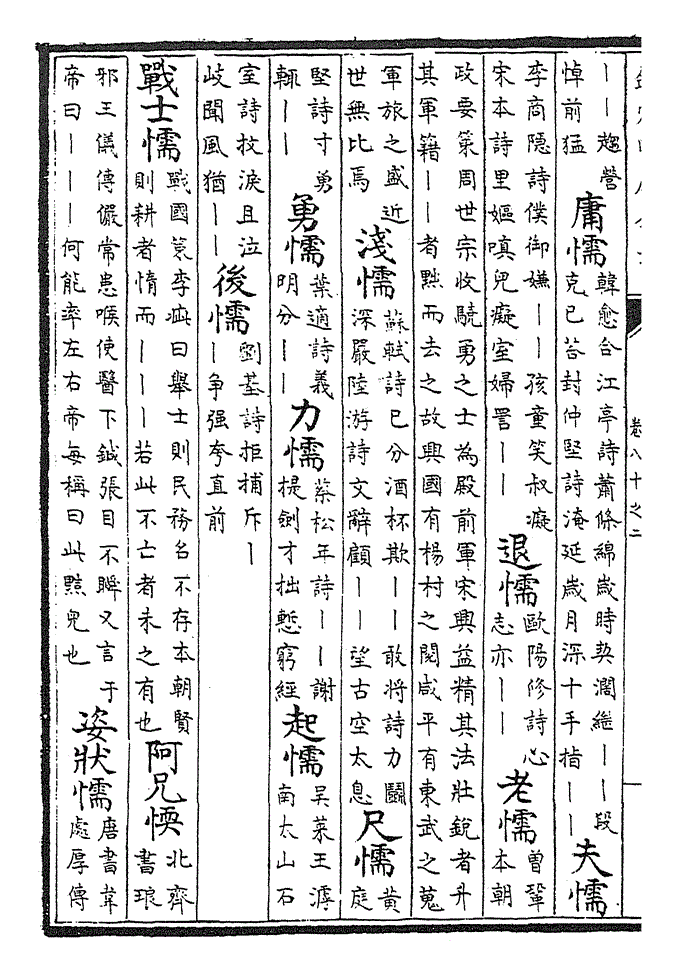 卷八十之二
——趨營
悼前猛
庸懦
韓愈合江亭詩蕭條綿歲時契濶繼——段
克已荅封仲堅詩淹延歲月深十手指——
夫懦
李商隱詩僕御嫌——孩童笑叔癡
宋本詩里嫗嗔兒癡室婦詈——
退懦
歐陽修詩心
志亦——
老懦
曾鞏
本朝
政要策周世宗收驍勇之士為殿前軍宋興益精其法壯銳者升
其軍籍——者黜而去之故興國有楊村之閱咸平有東武之蒐
軍旅之盛近
世無比焉
淺懦
蘇軾詩已分酒杯欺——敢將詩力鬭
深嚴陸游詩文辭顧——望古空太息
尺懦
黃
庭
堅詩寸勇
輒——
勇懦
葉適詩義
明分——
力懦
蔡松年詩——謝
提劍才拙慙窮經
起懦
吴萊王滹
南太山石
室詩抆淚且泣
歧聞風猶——
後懦
劉基詩拒捕斥—
—争强夸直前
戰士懦
戰國策李疵曰舉士則民務名不存本朝賢
則耕者惰而———若此不亡者未之有也
阿兄愞
北齊
書琅
邪王儀傳儼常患喉使醫下鍼張目不瞬又言于
帝曰———何能率左右帝每稱曰此黠兒也
姿狀懦
唐書韋
處厚傳